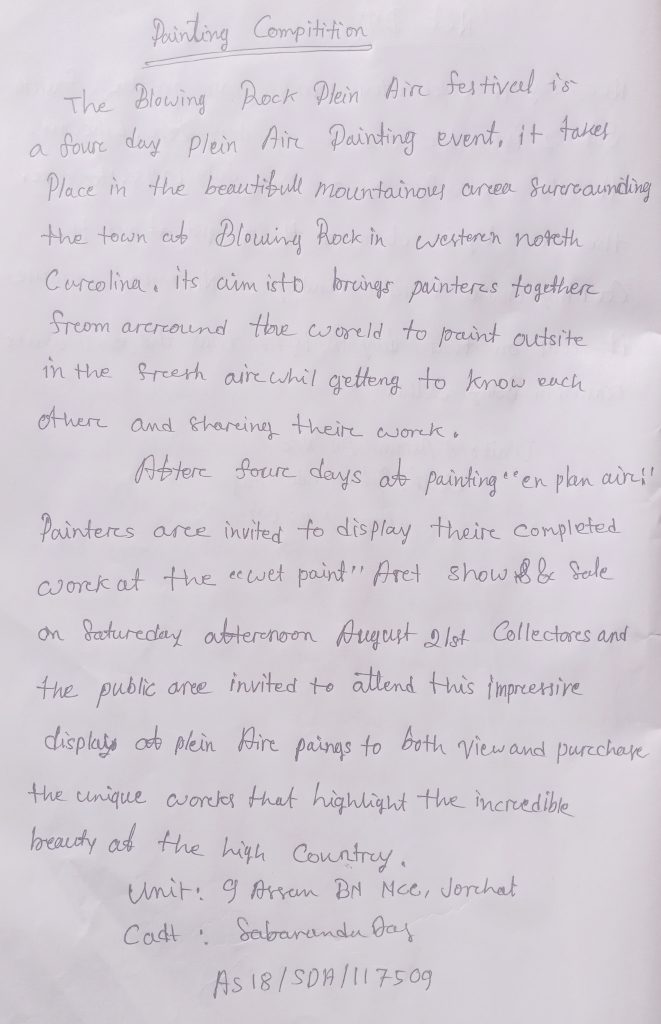 Painting Compitition
The Blowing Rock Plein Air festival is
a four day Plein Air Painting event, it takes
Place in the beautifull mountainous area Surrounding
the town of Blowing Rock in western north
Carolina. its aim is to brings painters together
from around the world to paint outsite
in the fresh air whil getteng to know each
other and shareing their work.
After four days of painting "en plan air"
Painters are invited to display their completed
work at the "wet paint" Aret show & & Sale
on Satureday afternoon August 21st Collectors and
the public are invited to attend this impressive
display of plein Aire paings to both view and purchase
the unique works that highlight the incredible
beauty of the high Country.
Unit: 9 Assam BN Ncc, Jorhat
Cadt : Das
AS 18/SDA/117509